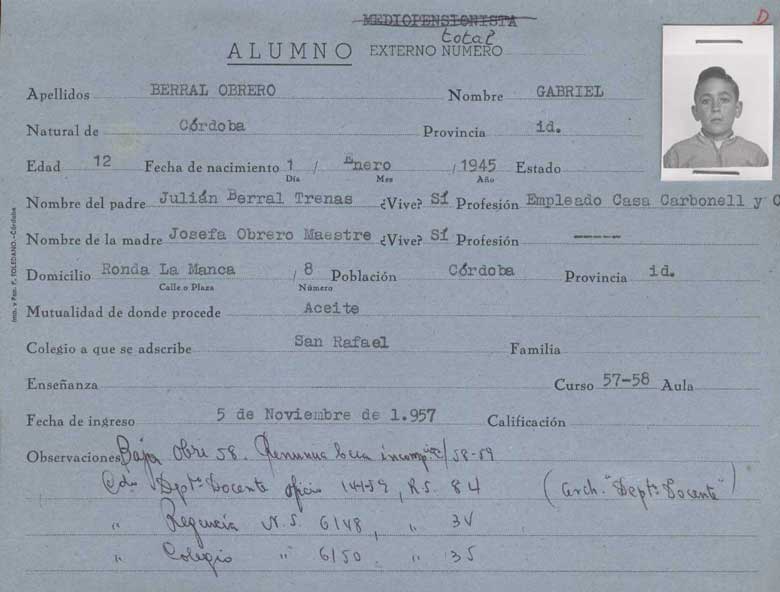 D
MEDIOPENSIONISTA
total
ALUMNO EXTERNO NUMERO
Apellidos BERRAL OBRERO Nombre GABRIEL
Natural de Córdoba Provincia id.
Edad 12 Fecha de nacimiento 1 / Enero / 1945 Estado
Día Mes Año
Nombre del padre Julián Berral Trenas ¿Vive? Sí Profesión Empleado Casa Carbonell y C
Nombre de la madre Josefa Obrero Maestre ¿Vive? Sí Profesión -----
Domicilio Ronda La Manca / 8 Población Córdoba Provincia id.
Calle o Plaza Número
Mutualidad de donde procede Aceite
Colegio a que se adscribe San Rafael Familia
Enseñanza Curso 57-58 Aula
Fecha de ingreso 5 de Noviembre de 1.957 Calificación
Observaciones Baja Obre 58. Renuncia beca /58-59
Dept. Docente oficio 14-1-59, R.S. 84 (Arch. "Dept. Docente")
" Regencia N.S. 6148, " 34
" Colegio " 6150, " 35
Imp. y Pap. F. TOLEDANO.-Córdoba